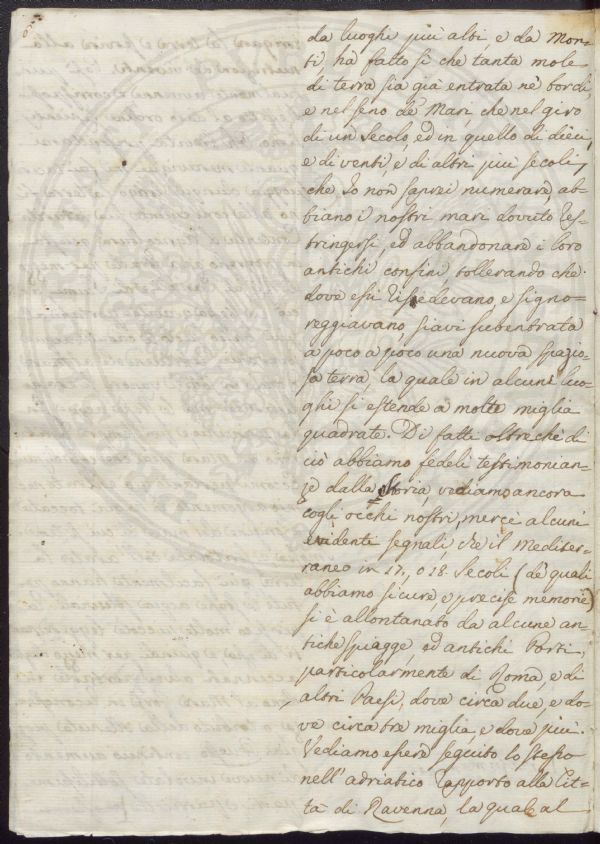 da luoghi più alti e da Mon-
ti, hà fatto sì che tanta mole
di terra sia già entrata nè bordi,
e nel seno de' Mari, che nel giro
di un secolo, ed in quello di dieci,
e di venti, e di altri più secoli,
che Io non saprei numerare, ab-
biano i nostri mari dovuto res-
tringersi, ed abbandonare i loro
antichi confini tollerando che
dove essi risiedevano, e signo-
reggiavano, siavi subentrata
a poco a poco una nuova spazio-
sa terra, la quale in alcuni luo-
ghi si estende a molte miglia
quadrate. Di fatti oltrechè di
ciò abbiamo fedeli testimonian-
ze dalla storia, vediamo ancora
cogli occhi nostri, mercè alcuni
evidenti segnali, che il Mediter-
raneo in 17., o 18. Secoli (de' quali
abbiamo sicure e precise memorie)
si è allontanato da alcune an-
tiche spiagge, ed antichi Porti,
particolarmente di Roma, e di
altri Paesi, dove circa due, e do-
ve circa tre miglia, e dove più.
Vediamo essere seguito lo stesso
nell'adriatico rapporto alla Cit-
tà di Ravenna, la qual al